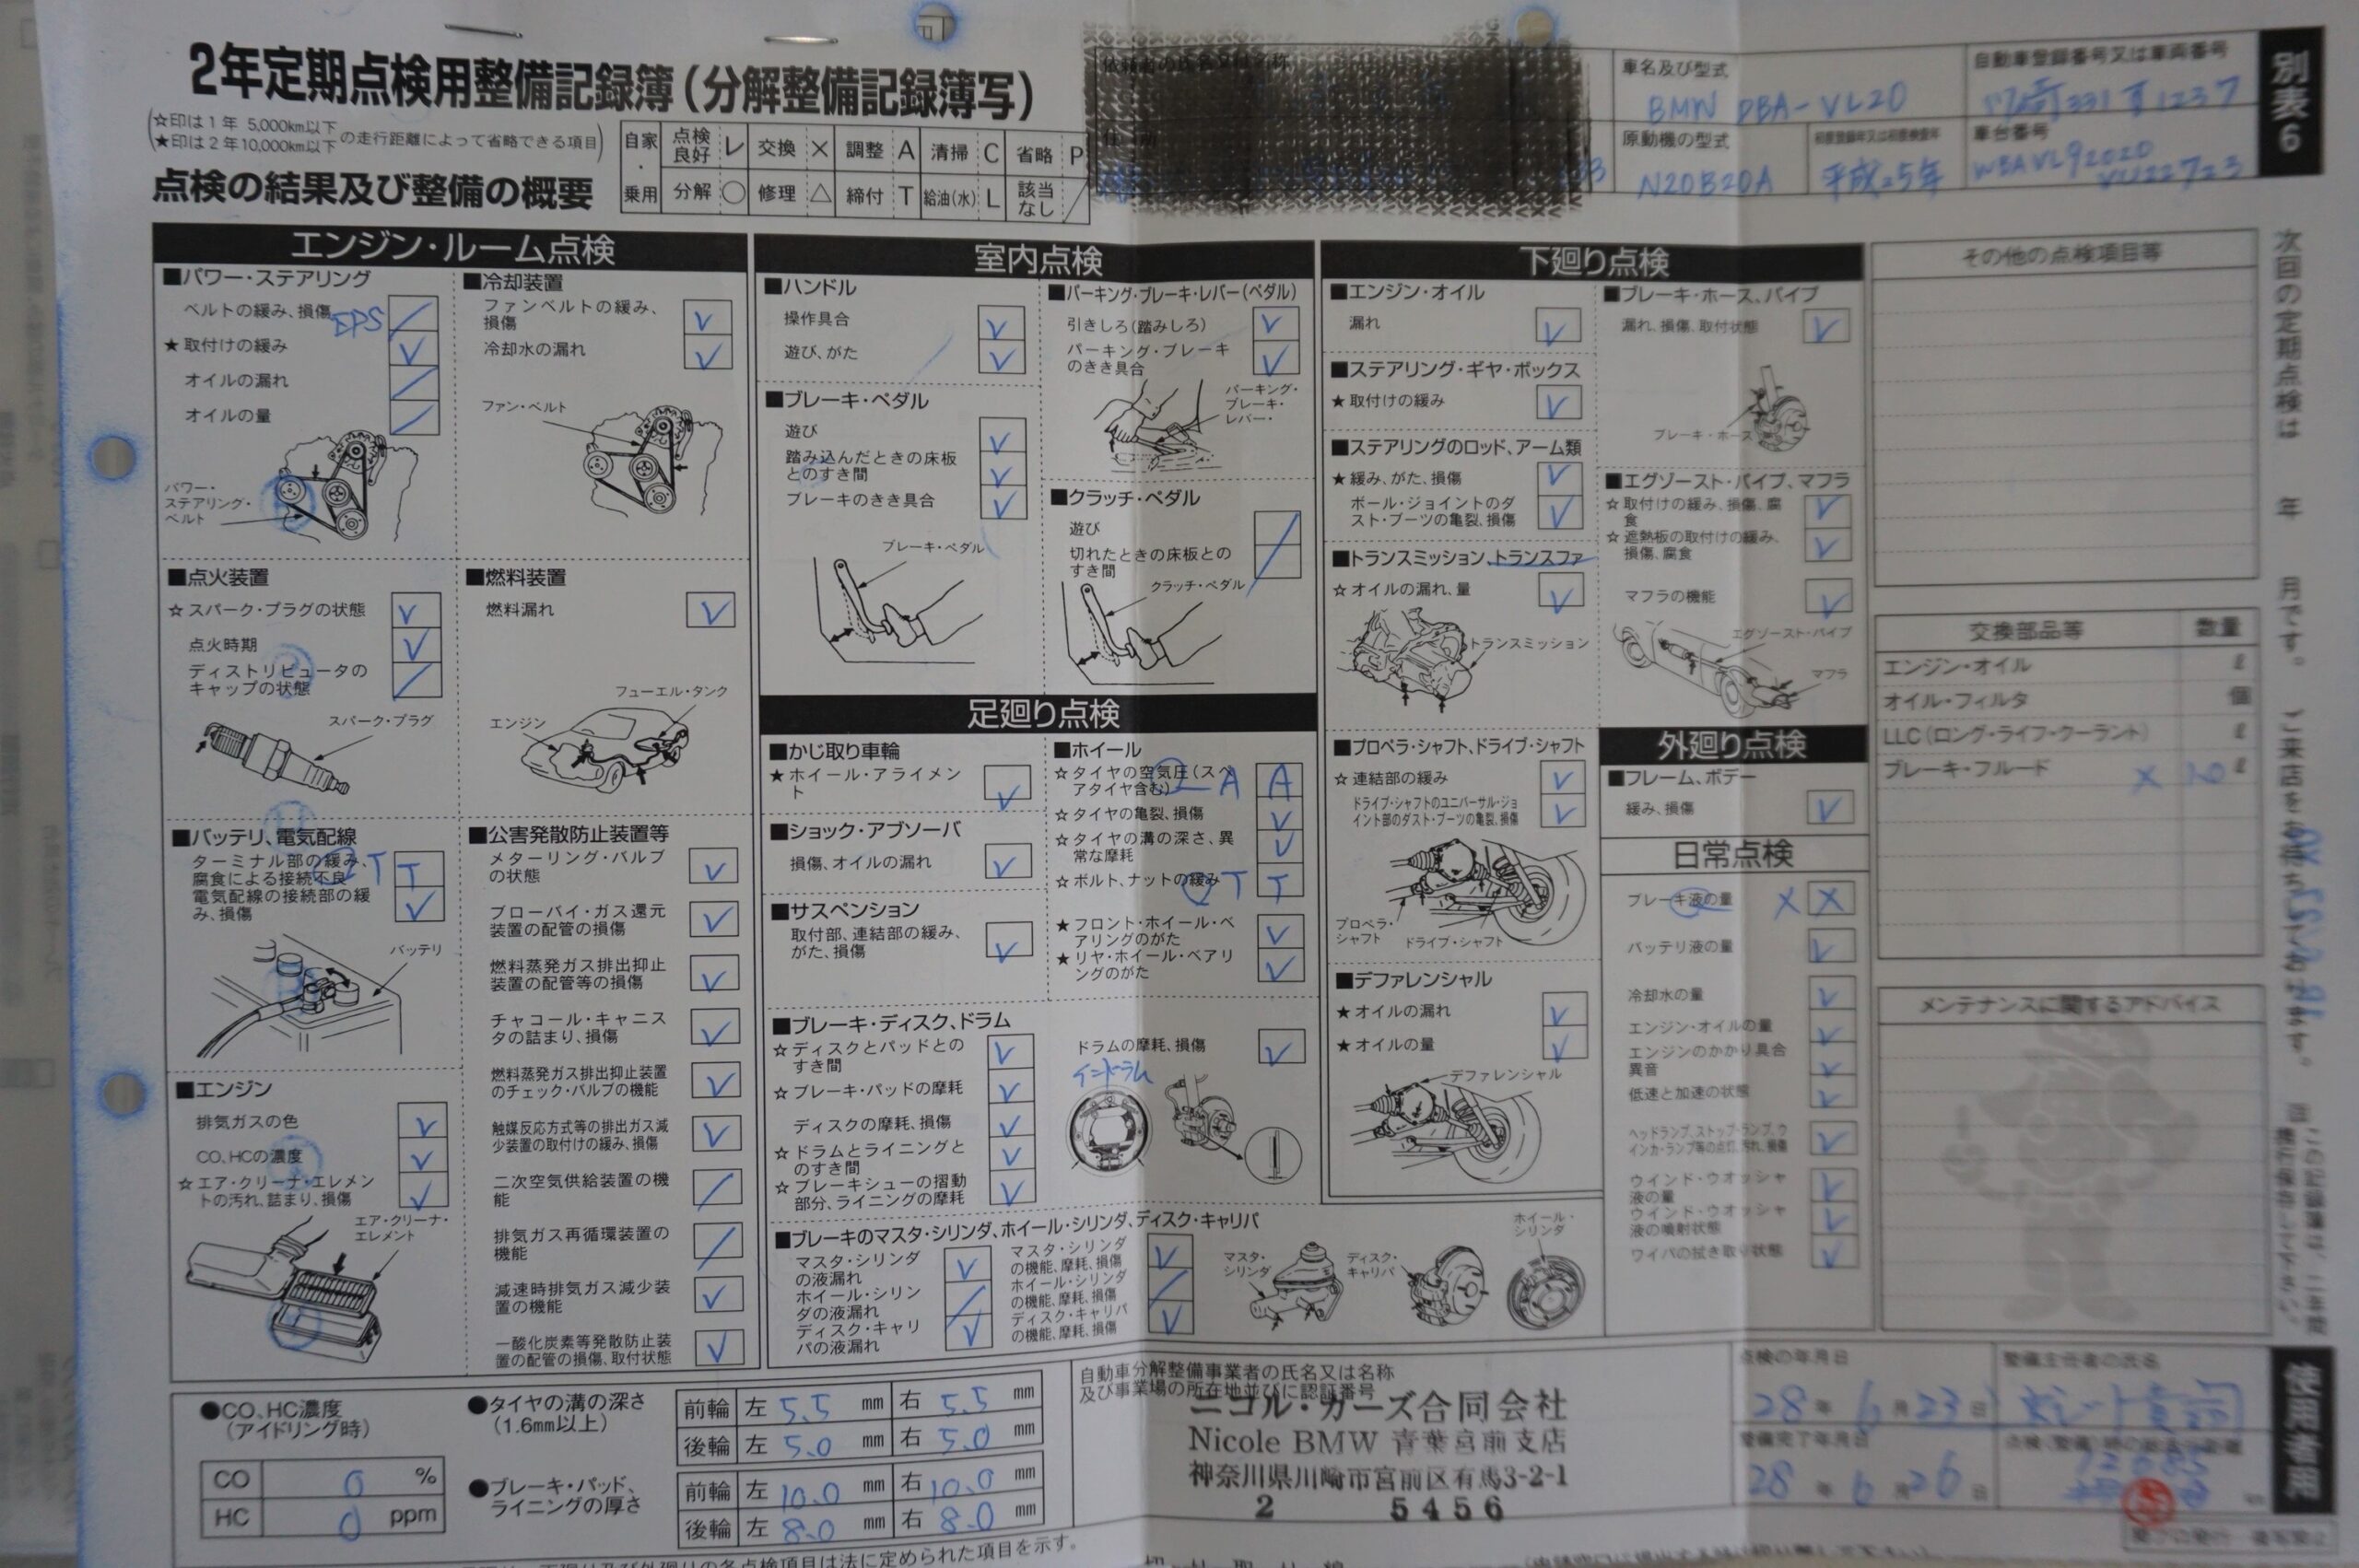 2年定期点検用整備記録簿(分解整備記録簿写)
☆印は1年 5,000km以下
★印は2年10,000km以下
の走行距離によって省略できる項目
点検の結果及び整備の概要
自家・乗用
点検良好 レ 交換 × 調整 A 清掃 C 省略 P
分解 ○ 修理 △ 締付 T 給油(水) L 該当なし ╱
依頼者の氏名又は名称
車名及び型式
BMW DBA-VL20
自動車登録番号又は車両番号
川崎331 1237
原動機の型式
N20B20A
初度登録年又は初度検査年
平成25年
車台番号
WBAVL92020
VU22723
別表6
エンジン・ルーム点検
■パワー・ステアリング
ベルトの緩み、損傷 EPS ╱
★取付けの緩み レ
オイルの漏れ ╱
オイルの量 ╱
パワー・ステアリング・ベルト
■冷却装置
ファンベルトの緩み、損傷 レ
冷却水の漏れ レ
ファン・ベルト
■点火装置
☆スパーク・プラグの状態 レ
点火時期 レ
ディストリビュータのキャップの状態 ╱
スパーク・プラグ
■燃料装置
燃料漏れ レ
フューエル・タンク
エンジン
■バッテリ、電気配線
ターミナル部の緩み、腐食による接続不良 T T
電気配線の接続部の緩み、損傷 レ
バッテリ
■エンジン
排気ガスの色 レ
CO、HCの濃度 レ
☆エア・クリーナ・エレメントの汚れ、詰まり、損傷 レ
エア・クリーナ・エレメント
■公害発散防止装置等
メターリング・バルブの状態 レ
ブローバイ・ガス還元装置の配管の損傷 レ
燃料蒸発ガス排出抑止装置の配管等の損傷 レ
チャコール・キャニスタの詰まり、損傷 レ
燃料蒸発ガス排出抑止装置のチェック・バルブの機能 レ
触媒反応方式等の排出ガス減少装置の取付けの緩み、損傷 レ
二次空気供給装置の機能 ╱
排気ガス再循環装置の機能 ╱
減速時排気ガス減少装置の機能 レ
一酸化炭素等発散防止装置の配管の損傷、取付状態 レ
室内点検
■ハンドル
操作具合 レ
遊び、がた レ
■ブレーキ・ペダル
遊び レ
踏み込んだときの床板とのすき間 レ
ブレーキのきき具合 レ
ブレーキ・ペダル
■パーキング・ブレーキ・レバー(ペダル)
引きしろ(踏みしろ) レ
パーキング・ブレーキのきき具合 レ
パーキング・ブレーキ・レバー・
■クラッチ・ペダル
遊び ╱
切れたときの床板とのすき間 ╱
クラッチ・ペダル
足廻り点検
■かじ取り車輪
★ホイール・アライメント レ
■ショック・アブソーバ
損傷、オイルの漏れ レ
■サスペンション
取付部、連結部の緩み、がた、損傷 レ
■ホイール
☆タイヤの空気圧(スペアタイヤ含む) A A
☆タイヤの亀裂、損傷 レ
☆タイヤの溝の深さ、異常な摩耗 レ
☆ボルト、ナットの緩み T T
★フロント・ホイール・ベアリングのがた レ
★リヤ・ホイール・ベアリングのがた レ
■ブレーキ・ディスク、ドラム
☆ディスクとパッドとのすき間 レ
☆ブレーキ・パッドの摩耗 レ
ディスクの摩耗、損傷 レ
☆ドラムとライニングとのすき間 レ
☆ブレーキシューの摺動部分、ライニングの摩耗 レ
ドラムの摩耗、損傷 レ
インドラム
■ブレーキのマスタ・シリンダ、ホイール・シリンダ、ディスク・キャリパ
マスタ・シリンダの液漏れ レ
ホイール・シリンダの液漏れ ╱
ディスク・キャリパの液漏れ レ
マスタ・シリンダの機能、摩耗、損傷 レ
ホイール・シリンダの機能、摩耗、損傷 ╱
ディスク・キャリパの機能、摩耗、損傷 レ
マスタ・シリンダ
ディスク・キャリパ
ホイール・シリンダ
下廻り点検
■エンジン・オイル
漏れ レ
■ステアリング・ギヤ・ボックス
★取付けの緩み レ
■ステアリングのロッド、アーム類
★緩み、がた、損傷 レ
ボール・ジョイントのダスト・ブーツの亀裂、損傷 レ
■トランスミッション、トランスファ
☆オイルの漏れ、量 レ
トランスミッション
■プロペラ・シャフト、ドライブ・シャフト
☆連結部の緩み レ
ドライブ・シャフトのユニバーサル・ジョイント部のダスト・ブーツの亀裂、損傷 レ
プロペラ・シャフト
ドライブ・シャフト
■デファレンシャル
★オイルの漏れ レ
★オイルの量 レ
デファレンシャル
■ブレーキ・ホース、パイプ
漏れ、損傷、取付状態 レ
ブレーキ・ホース
■エグゾースト・パイプ、マフラ
☆取付けの緩み、損傷、腐食 レ
☆遮熱板の取付けの緩み、損傷、腐食 レ
マフラの機能 レ
エグゾースト・パイプ
マフラ
外廻り点検
■フレーム、ボデー
緩み、損傷 レ
日常点検
ブレーキ液の量 X X
バッテリ液の量 レ
冷却水の量 レ
エンジン・オイルの量 レ
エンジンのかかり具合 異音 レ
低速と加速の状態 レ
ヘッドランプ、ストップ・ランプ、ウインカ・ランプ等の点灯、汚れ、損傷 レ
ウインド・ウオッシャ液の量 レ
ウインド・ウオッシャ液の噴射状態 レ
ワイパの拭き取り状態 レ
その他の点検項目等
交換部品等 数量
エンジン・オイル ℓ
オイル・フィルタ 個
LLC(ロング・ライフ・クーラント) ℓ
ブレーキ・フルード X ℓ
メンテナンスに関するアドバイス
次回の定期点検は 年 月です。ご来店をお待ちしております。
この記録簿は、二年間携行保存して下さい。
使用者用
●CO、HC濃度
(アイドリング時)
CO 0 %
HC 0 ppm
●タイヤの溝の深さ
(1.6mm以上)
前輪 左 5.5 mm 右 5.5 mm
後輪 左 5.0 mm 右 5.0 mm
●ブレーキ・パッド、ライニングの厚さ
前輪 左 10.0 mm 右 10.0 mm
後輪 左 8.0 mm 右 8.0 mm
自動車分解整備事業者の氏名又は名称
及び事業場の所在地並びに認証番号
ニコル・カーズ合同会社
Nicole BMW 青葉宮前支店
神奈川県川崎市宮前区有馬3-2-1
2 5456
点検の年月日
28年 6月 23日
整備完了年月日
28年 6月 26日
整備主任者の氏名